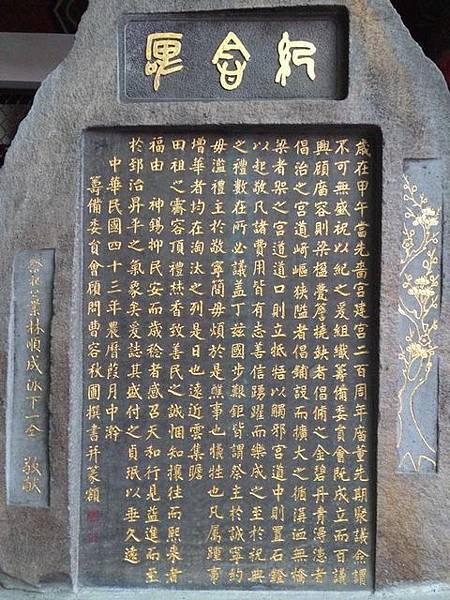 歲在甲午當先嗇宮建宮二百周年庙董先期聚議僉謂
不可無盛祝以紀之爰組織籌備委員會既成立而百議
興顧庙容則梁楹甍撓缺者倡脩之金碧丹青漫漶者
倡治之宮道崎嶇狹隘者倡鋪設而擴大之循溝洫無橋
梁者架之宮道道口則立抵牾以觸邪宮道中則置石鐙
以起敬凡諸費用皆有志善信踴躍而樂成之至於祝典
之禮數在所必議盖丁兹國步艱鉅皆謂祭主於誠寧約
毋濫禮主於敬寧簡毋煩於是醮事也犧牲也凡屬踵事
增華者均在淘汰之列是日也遠近雲集瞻
田祖之靈容頂禮炷香致善民之誠悃知攘往而熙來者
福由 神錫抑民安而歲稔者感召天和行見益進而至
於郅治昇平之氣象矣爰誌其盛付之貞珉以垂久遠
中華民國四十三年農曆葭月中澣
籌備委員會顧問曹容秋圃撰書并篆額
祭祀公業林順成派下一仝 敬献